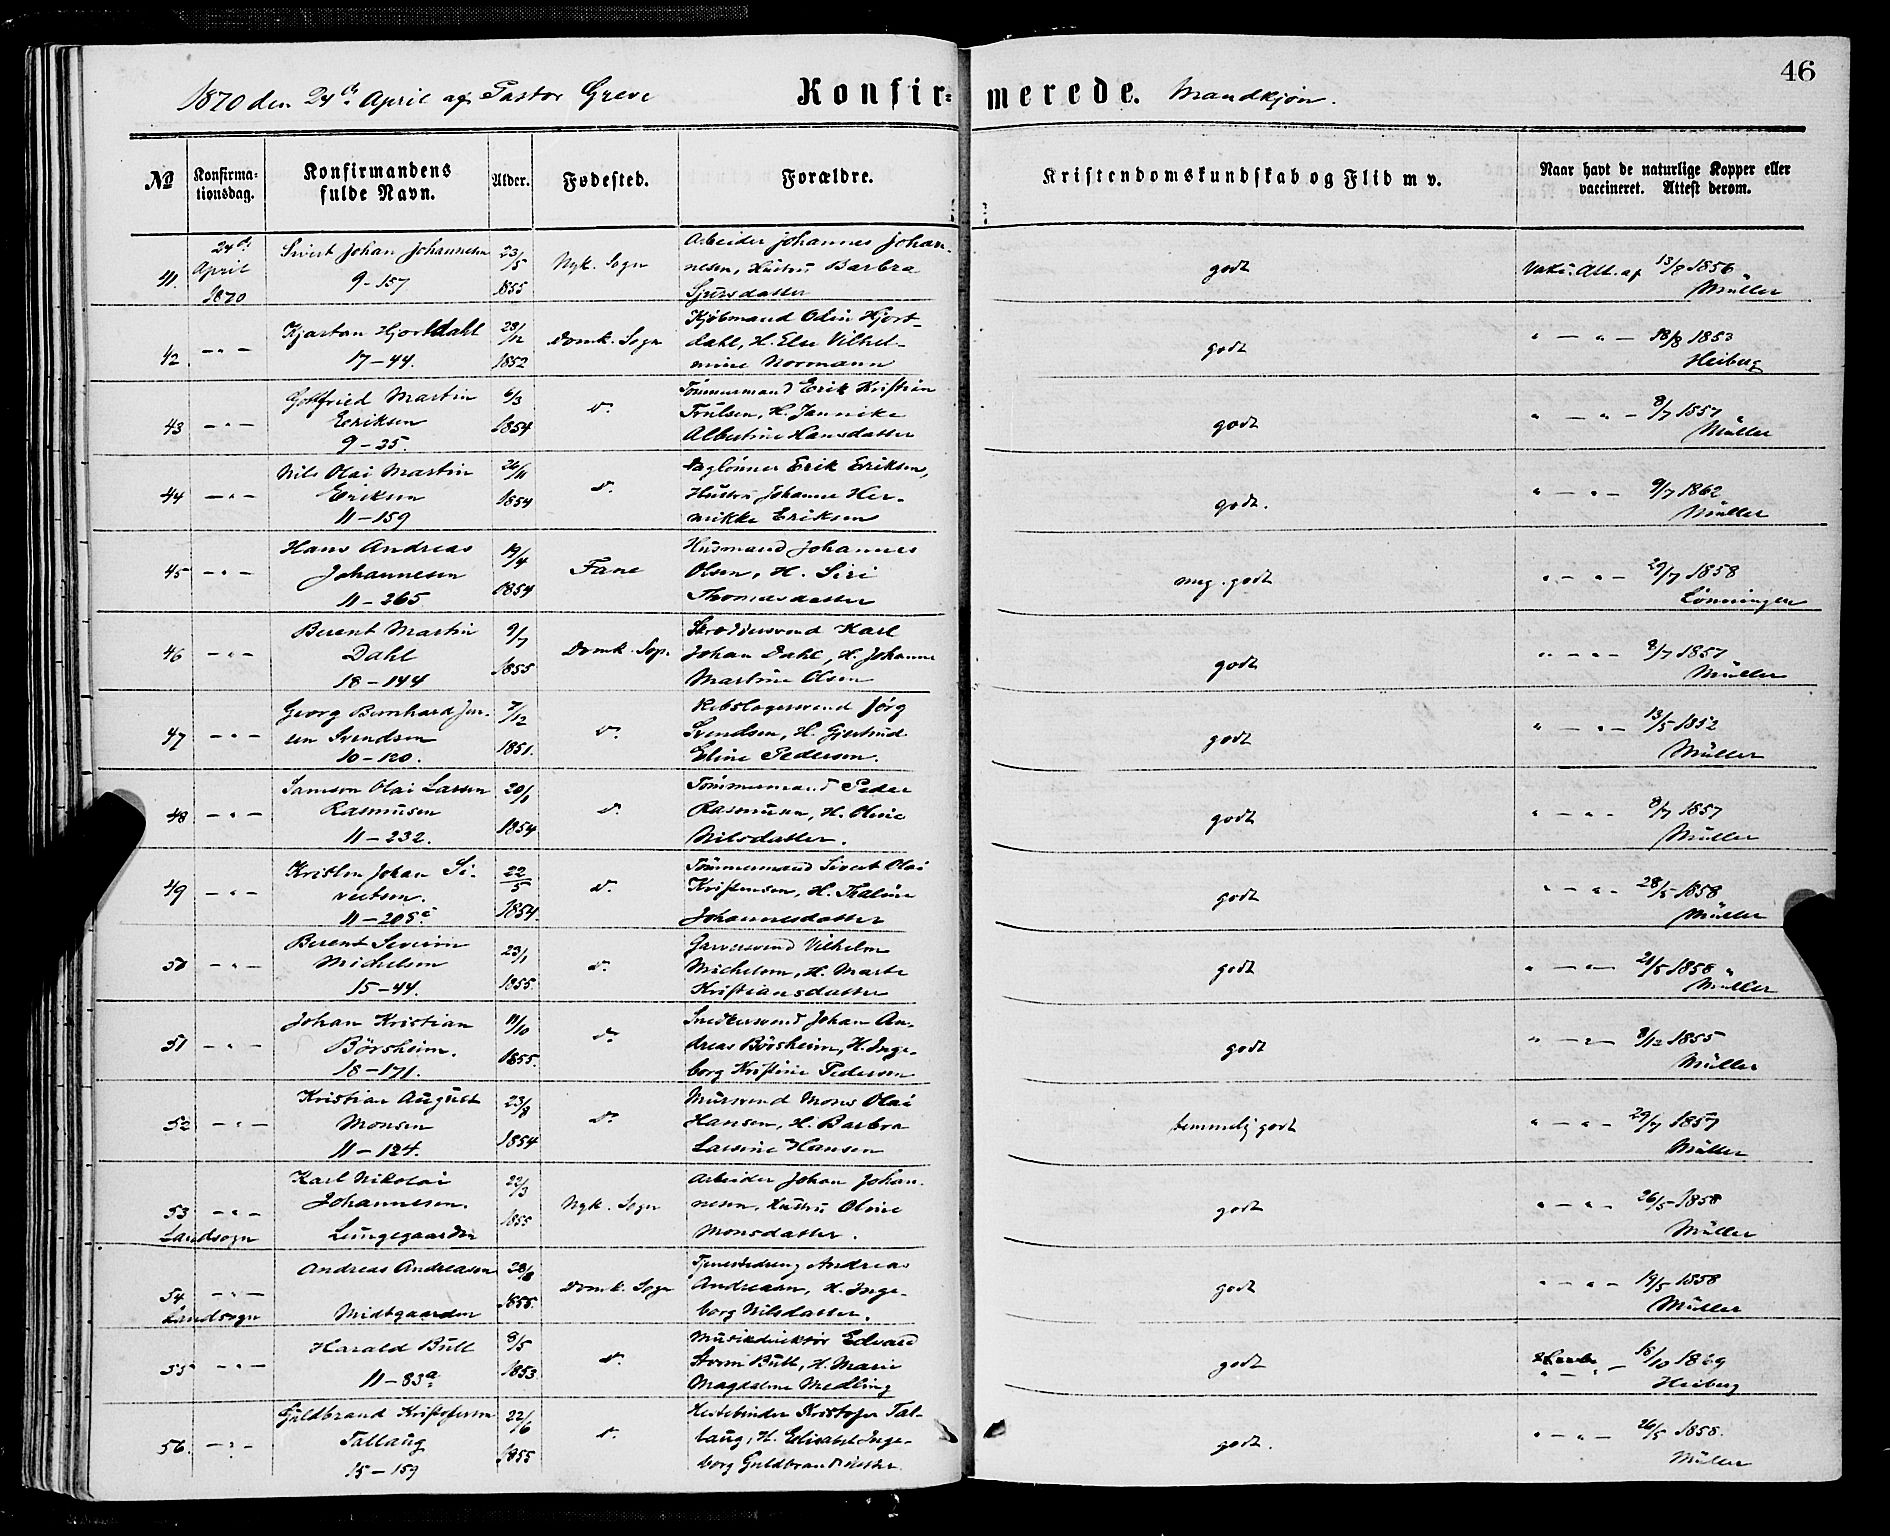 46
1870 den 24de April af Pastor Greve Konfir= merede. Mandkjøn.
No Konfirma- Konfirmandens Alder. Fødested. Forældre. Kristendomskundskab og Flid m v. Naar havt de naturlige Kopper eller
tionsdag. fulde Navn. vaccineret. Attest derom.
24de Sivert Johan Johannesen 23/5 Nyk. Sogn Arbeider Johannes Johan-
41. April 9-157 1855 nesen, Hustru Barbra godt Vaks. Att. af 13/8 1856
1870 Sjursdatter Müller
Kjartan Hjortdahl 28/12 Domk. Sogn Kjøbmand Odin Hjort-
42 -"- 17-44. 1852 dahl, H. Else Vilhel- godt " - " - 18/8 1853
mine Normann Heiberg
Gottfried Martin 6/3 Tömmermand Erik Kristian
43 -"- Eriksen 1854 do Trulsen, H. Jannike godt " - " - 8/7 1857
9-25. Albertine Hansdatter Müller
Nils Olai Martin 26/11 Daglönner Erik Eriksen,
44 -"- Eriksen 1854 do Hustru Johanne Hen- godt. " - " - 9/7 1862
11-159 rikke Eriksen Müller
Hans Andreas 19/4 Husmand Johannes
45 -"- Johannesen 1854 Fane Olsen, H. Siri meg. godt " - " - 29/7 1858
11-265 Thomasdatter Lönningen
Berent Martin 9/7 Skræddersvend Karl
46 -"- Dahl 1855 Domk. Sogn Johan Dahl, H. Johanne godt " - " - 8/7 1857
18-144 Martine Olsen Müller
Georg Bernhard Jen- 7/12 Rebslagersvend Jörg
47 -"- sen Svendsen 1851. do Svendsen, H. Gjertrud godt " - " - 13/5 1852
10-120. Eline Pedersen. Müller
Samson Olai Larsen 20/1 Tömmermand Peder
48 -"- Rasmusen 1854 do Rasmusen, H. Oline godt " - " - 8/7 1857
11-232. Nilsdatter. Müller
Kristen Johan Si- 22/5 Tömmermand Sivert Olai
49 -"- vertsen. 1854. do Kristensen, H. Thaline godt " - " - 28/5 1858
11-205c Johannesdatter Müller
Berent Severin 23/1 Garversvend Vilhelm
50 -"- Michelsen 1855. do Michelsen, H. Marte godt " - " - 21/5 1858
15-44. Kristiansdatter Müller
Johan Kristian 11/10 Snedkersvend Johan An-
51 -"- Börsheim. 1855. do dreas Börsheim, H. Inge- godt " - " - 8/12 1855
18-171. borg Kristine Pedersen Müller
Kristian August 23/8 Mursvend Mons Olai
52 -"- Monsen 1854 do Hansen, H. Barbra temmelig godt " - " - 29/7 1857
11-124. Larsine Hansen Müller
Karl Nikolai 22/3 Arbeider Johan Johan-
53 -"- Johannesen. 1855 Nyk. Sogn nesen, Hustru Oline godt " - " - 26/5 1858
Landsogn Lungegaarden Monsdatter. Müller
Andreas Andreasen 28/8 Tjenestedreng Andreas
54 -"- 1855. Domk. Sogn Andreasen, H. Inge- godt " - " - 19/5 1858
Landsogn Midtgaarden borg Nilsdatter. Müller
Harald Bull 8/5 Musikdirektör Edvard
55 -"- 1853 do Storm Bull, H. Marie godt " - " - 16/10 1869
11-83a Magdalene Medling Heiberg
Guldbrand Kristofersen 22/6 Hestebinder Kristofer Tal-
56. -"- Tallaug 1855 do laug, H. Elisabet Inge- godt. " - " - 26/5 1858.
15-159 borg Guldbrandsdatter. Müller